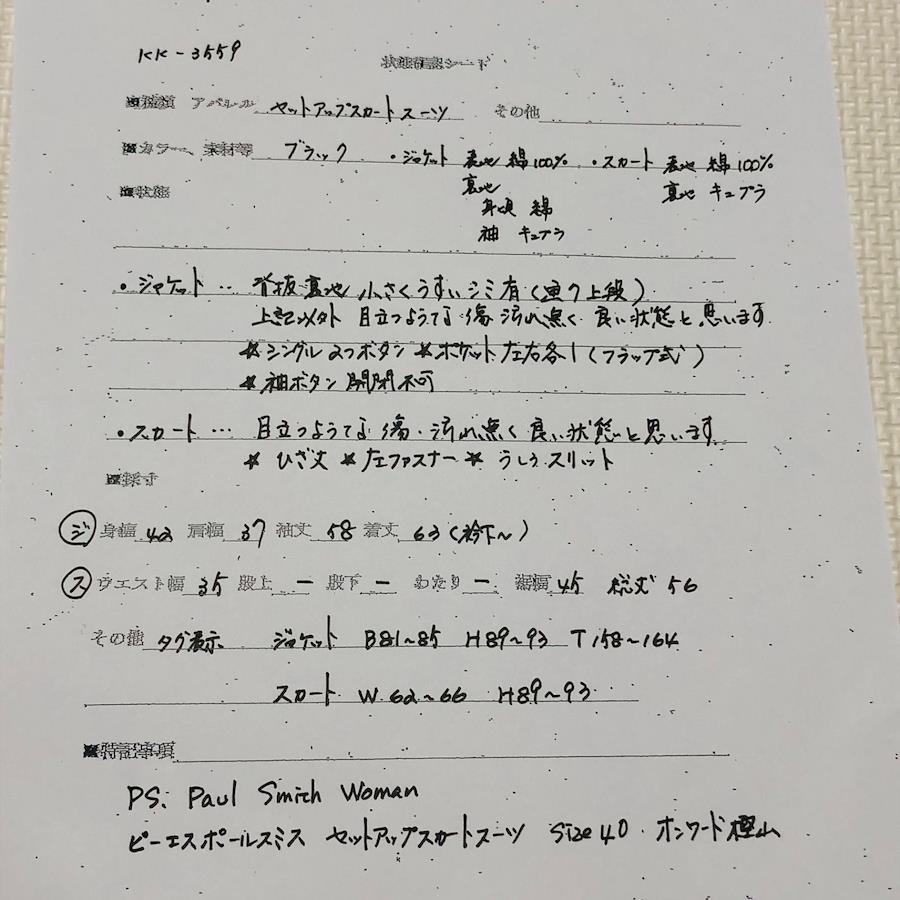 KK-3559
状態確認シート
■種類 アパレル セットアップスカートスーツ その他
■カラー、素材等 ブラック ・ジャケット 表地 綿100% ・スカート 表地 綿100%
裏地 裏地 キュプラ
■状態 身頃 綿
袖 キュプラ
・ジャケット‥ 背抜裏地 小さくうすいシミ有(上段)
上記以外 目立つような傷 汚れ無く 良い状態と思います
★シングル2つボタン ★ポケット左右各1(フラップ式)
★袖ボタン開閉不可
・スカート… 目立つような傷・汚れ無く 良い状態と思います
★ ひざ丈 ★左ファスナー★ うしろスリット
■採寸
ジ 身幅 42 肩幅 37 袖丈 58 着丈 63(衿下~)
ス ウエスト幅 35 股上 ー 股下 ー わたり ー 裾幅 45 総丈 56
その他 タグ表示 ジャケット B81~85 H89~93 T158~164
スカート W 62~66 H89~93
■特記事項
PS. Paul Smith Woman
ピーエスポールスミス セットアップスカートスーツ Size 40 オンワード樫山